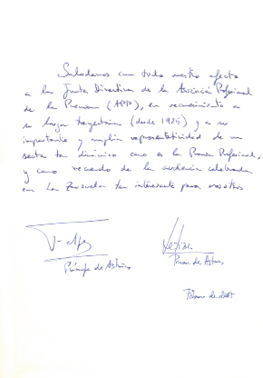 Saludamos con todo nuestro afecto
a la Junta Directiva de la Asociación Profesional
de la Prensa (APP), en reconocimiento a
su larga trayectoria (desde 1925) y a su
importante y amplia representatividad de un
sector tan dinámico como es la Prensa Profesional,
y como recuerdo de la audiencia celebrada
en La Zarzuela tan interesante para nosotros.
Príncipe de Asturias
Princesa de Asturias
Febrero de